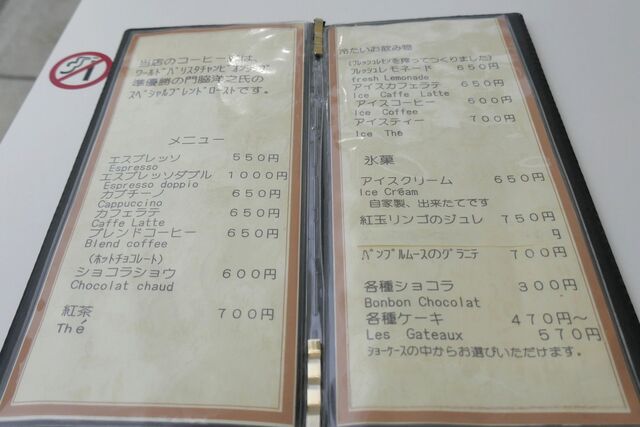 当店のコーヒー豆は、
ワールドバリスタチャンピオンシップ
準優勝の門脇洋之氏の
スペシャルブレンドローストです。
メニュー
エスプレッソ 550円
Espresso
エスプレッソダブル 1000円
Espresso doppio
カプチーノ 650円
Cappuccino
カフェラテ 650円
Caffe Latte
ブレンドコーヒー 650円
Blend coffee
(ホットチョコレート)
ショコラショウ 600円
Chocolat chaud
紅茶 700円
Thé
冷たいお飲み物
(フレッシュレモンを搾ってつくりました)
フレッシュレモネード 650円
fresh Lemonade
アイスカフェラテ 650円
Ice Caffe Latte
アイスコーヒー 600円
Ice Coffee
アイスティー 700円
Ice Thé
氷菓
アイスクリーム 650円
Ice Crêam
自家製、出来たてです
紅玉リンゴのジュレ 750円
パンプルムースのグラニテ 700円
各種ショコラ 300円
Bonbon Chocolat
各種ケーキ 470円~
Les Gateaux 570円
ショーケースの中からお選びいただけます。